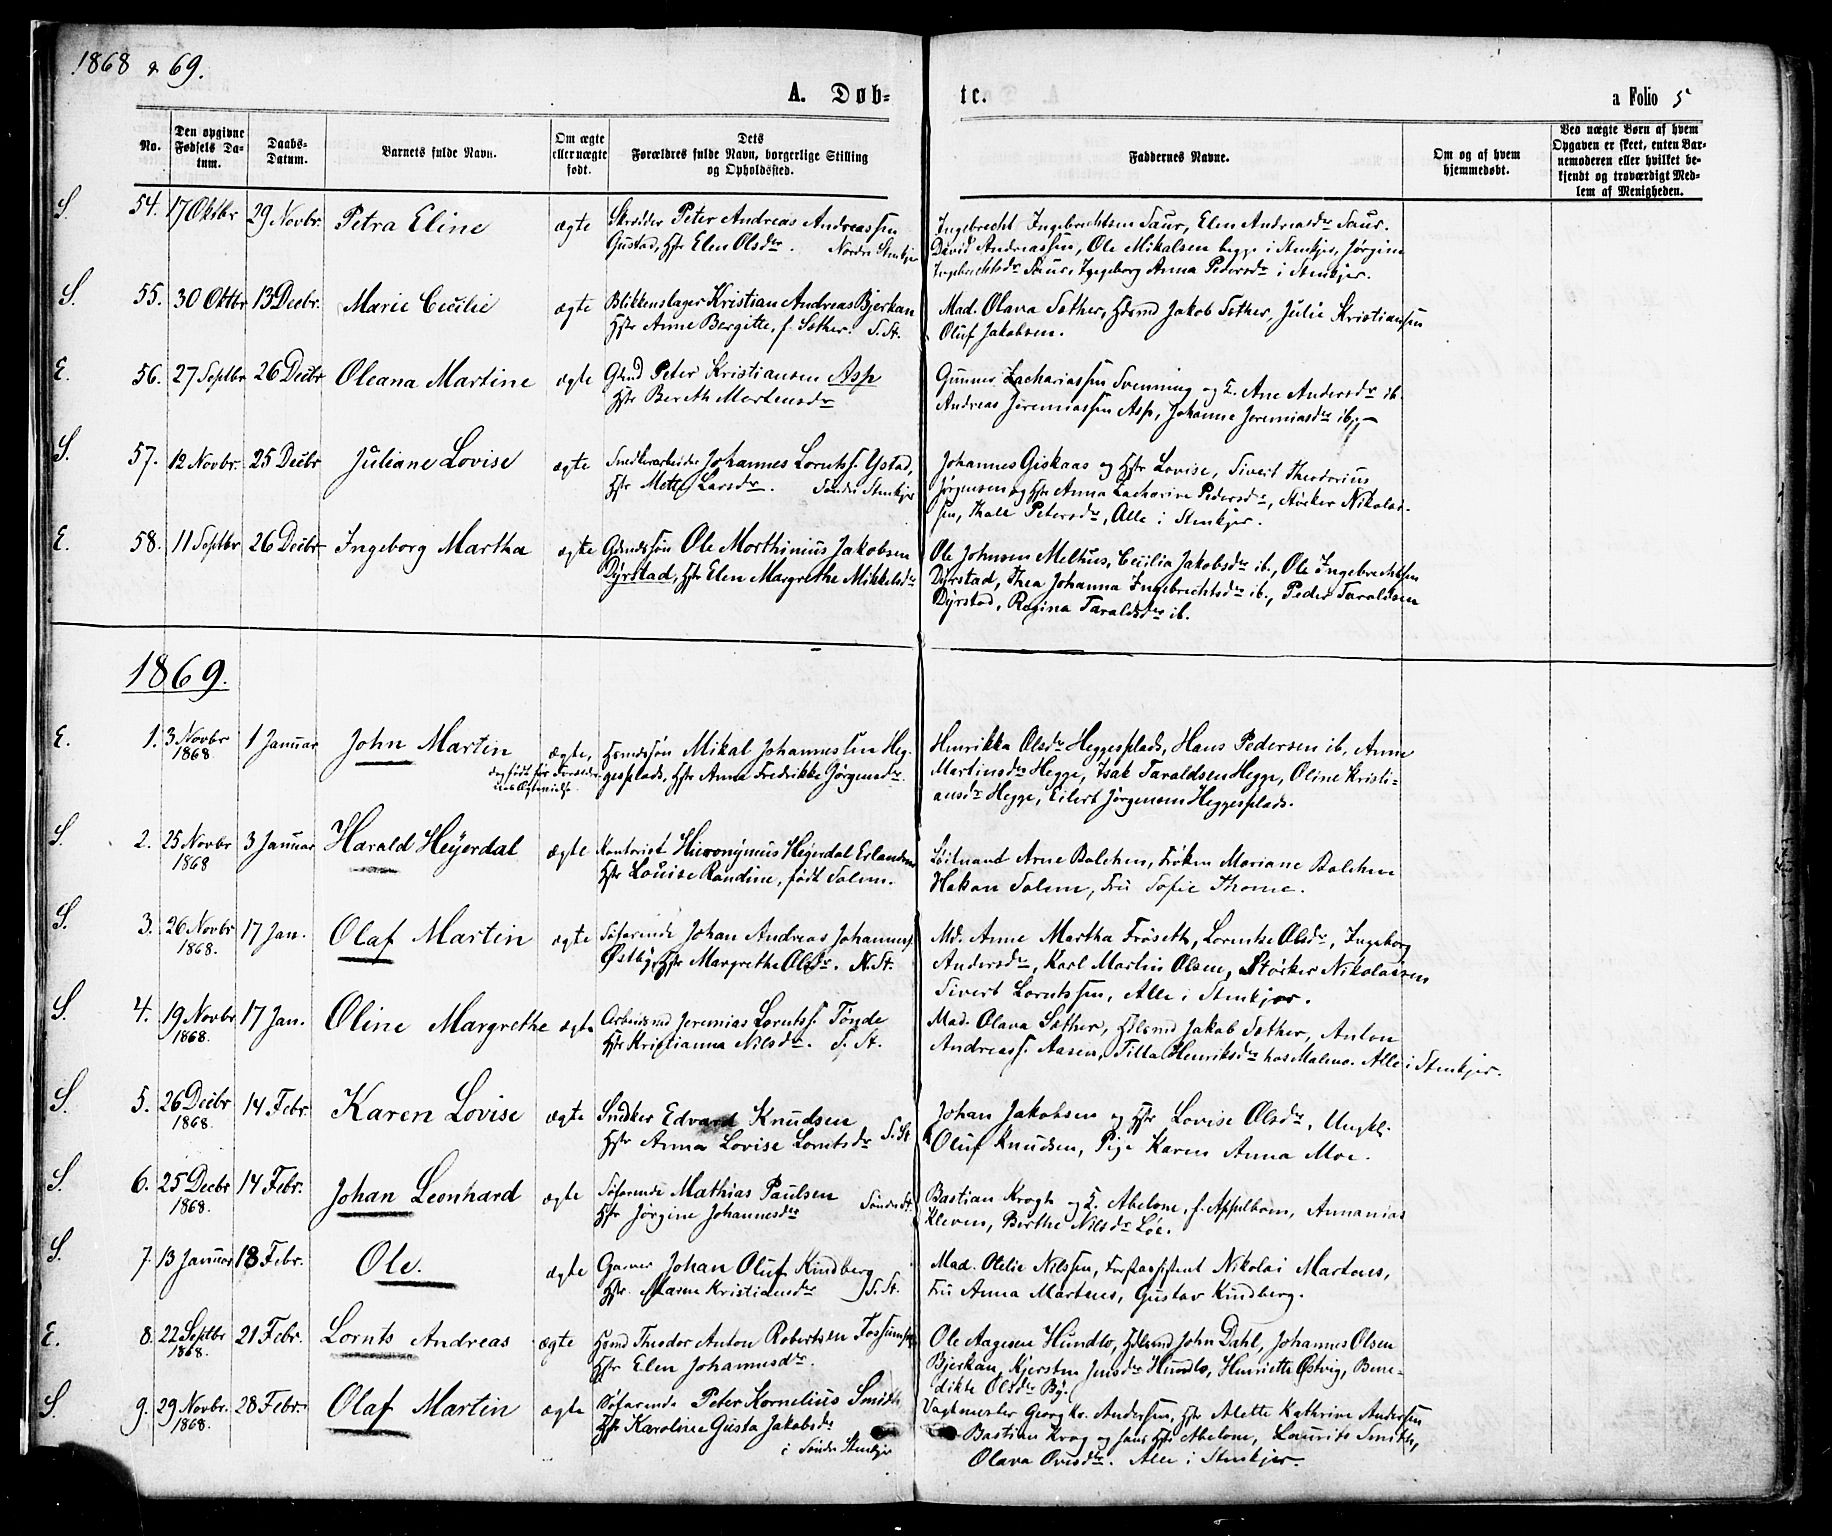 1868 & 69.
A. Døb-
te.
a Folio 5
No.
Den opgivne Fødsels Da-tum.
Daabs-Datum.
Barnets fulde Navn.
Om ægte eller uægte født.
Dets Forældres fulde Navn, borgerlige Stilling og Opholdssted.
Faddernes Navne.
Om og af hvem hjemmedøbt.
Ved uægte Børn af hvem Opgaven er skeet, enten Bar-nemoderen eller hvilket be-kjendt og troværdigt Med-lem af Menigheden.
S. 54. 17 Oktbr 29 Novbr. Petra Eline ægte Skrædder Peter Andreas Andreassen
Gustad, Hstr Elen Olsdr. Nordre Stenkjer
Ingebrecht Ingebrechtsen Saur, Elen Andreasdr Saur.
David Andreassen, Ole Mikalsen begge i Stenkjer, Jørgine
Ingebrechtsdr Saur, Ingeborg Anna Pedersdr i Stenkjer.
S. 55. 30 Oktbr 13 Decbr. Marie Cecilie ægte Blikkenslager Kristian Andreas Bjerkan
Hstr Anne Bergitte, f. Sæther. S. St.
Mad. Olava Sæther, Hdsmd Jakob Sæther, Julie Kristiansen
Oluf Jakobsen.
E. 56. 27 Septbr 26 Decbr Oleana Martine ægte Gbmd Peter Kristiansen Asp
Hstr Bereth Mortensdr
Gunner Zachariassen Svenning og H. Ane Andersdr ib.
Andreas Jeremiassen Asp, Johanne Jeremiasdr ib.
S. 57. 12 Novbr. 25 Decbr Juliane Lovise ægte Snedkerarbeider Johannes Lorntss. Ystad,
Hstr Mette Larsdr. Søndre Stenkjer
Johannes Giskaas og Hstr Lovise, Sivert Theodorius
Jørgensen og Hstr Anna Zacharine Pedersdr, Størker Nikolai-
sen, Thale Petersdr, Alle i Stenkjer.
E. 58. 11 Septbr 26 Decbr Ingeborg Martha ægte Gbmdssøn Ole Morthinius Jakobsen
Dyrstad, Hstr Elen Margrethe Mikkelsdr
Ole Johnsen Melhus, Cecilia Jakobsdr ib., Ole Ingebrechtsen
Dyrstad, Thea Johanna Ingebrechtsdr ib., Peder Taraldsen
Dyrstad, Regina Taraldsdr ib.
1869.
E. 1. 3 Novbr 1868 1 Januar John Martin ægte, Hsmdssøn Mikal Johannessen Heg-
dog født før Forældr
gesplads, Hstr Anna Fredrikke Jørgensdr
Henrikka Olsdr Heggesplads, Hans Pedersen ib, Anne
Martinsdr Hegge, Isak Taraldsen Hegge, Oline Kristi-
ansdr Hegge, Eilert Jørgensen Heggesplads.
S. 2. 25 Novbr 1868 3 Januar Harald Heyerdal ægte Kontorist Hieronymus Heyerdal Erlandsen
Hstr Louise Randine, født Salen.
Løitnand Arne Balchen, Frøken Mariane Balchen
Hakon Salen, Fru Sofie Thome.
S. 3. 26 Novbr 1868. 17 Jan. Olaf Martin ægte Søfarende Johan Andreas Johannes.
Østby, Hstr Margrethe Olsdr. N. St.
Md. Anne Martha Frøseth, Lorntse Olsdr, Ingeborg
Andersdr, Karl Martin Olsen, Størker Nikolaisen
Sivert Lorntssen, Alle i Stenkjer.
S. 4. 19 Novbr 1868. 17 Jan. Oline Margrethe ægte Arbeidsmd Jeremias Lorntss. Tønde
Hstr Kristianna Nilsdr. S. St.
Mad. Olava Sæther, Hdlsmd Jakob Sæther, Anton
Andreass. Aasen, Tilla Henriksdr hos Malmo. Alle i Stenkjer.
S. 5. 26 Decbr 1868. 14 Febr. Karen Lovise ægte Snedker Edvard Knudsen
Hstr Anna Lovise Lorntsdr S. St
Johan Jakobsen og Hstr Lovise Olsdr, Ungkl.
Oluf Knudsen, Pige Karen Anna Moe.
S. 6. 25 Decbr 1868. 14 Febr. Johan Leonhard ægte Søfarende Mathias Paulsen
Hstr Jørgine Johannesdr Søndre St.
Bastian Krogh og H. Abelone, f. Appelbom, Annanias
Kleven, Berthe Nilsdr Løe.
S. 7. 13 Januar 18 Febr. Ole. ægte Garver Johan Oluf Kindberg
Hstr. Maren Kristiansdr S. St.
Mad. Otelie Nilssen, Forstassistent Nikolai Martens,
Fru Anna Martens, Gustav Kindberg.
E. 8. 22 Septbr 1868. 21 Febr. Lornts Andreas ægte Hsmd Theodor Anton Robertsen Fossumsp
Hstr Elen Johannesdr.
Ole Aagesen Hundlo, Hdlsmd John Dahl, Johannes Olsen
Bjerkan, Kjersten Jensdr Hundlo, Henriette Østvig, Bene-
dikte Olsdr By.
S. 9. 29 Novbr. 1868. 28 Febr. Olaf Martin ægte Søfarende Peter Kornelius Smith
Hstr Karoline Gusta Jakobsdr
i Søndre Stenkjer
Vagtmester Georg Kr. Andersen, Hstr Alette Kathrine Andersen
Bastian Krog og hans Hstr Abelone, Laurits Smith,
Olava Ovesdr. Alle i Stenkjer.